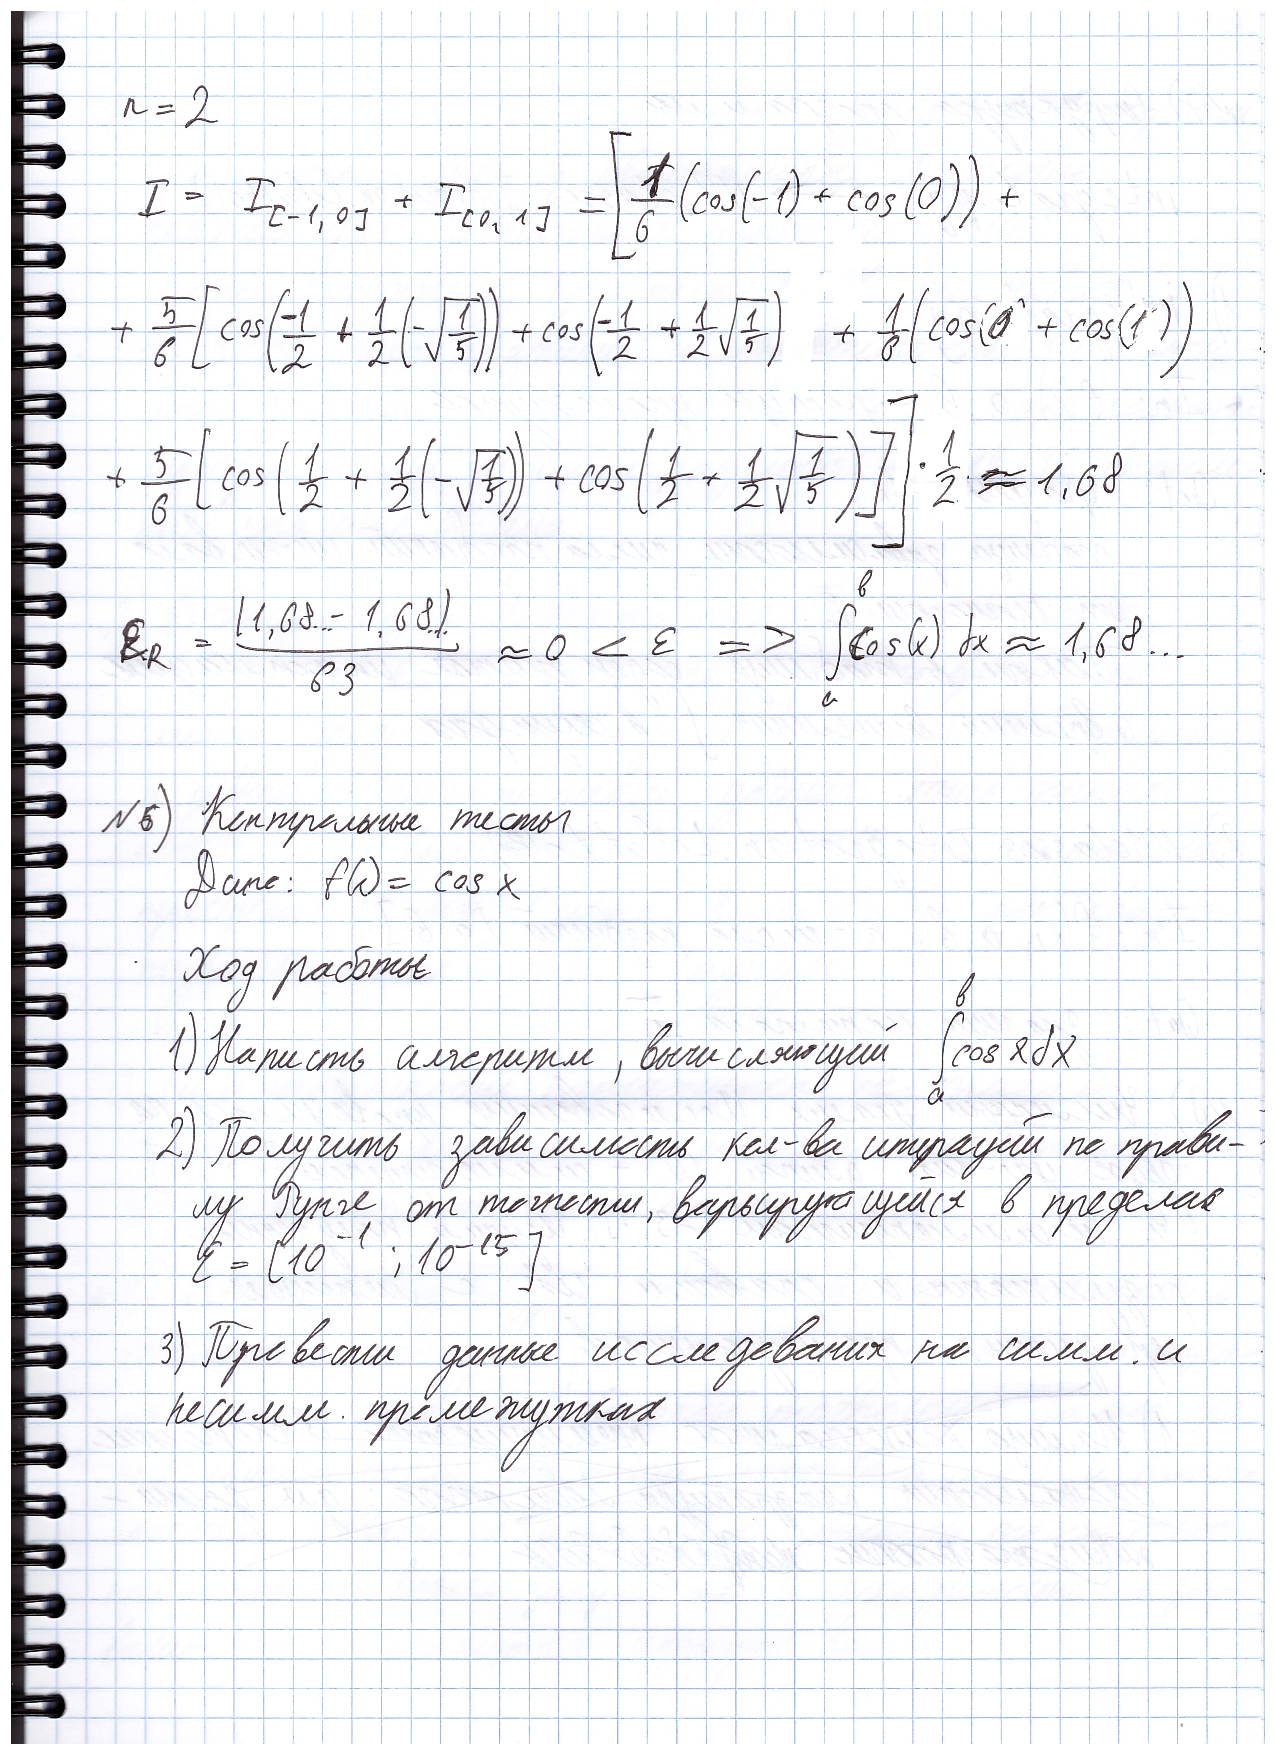 n = 2
I = I[-1,0] + I[0,1] = [1/6 (cos(-1) + cos(0)) +
+ 5/6 [cos(-1/2 + 1/2(-√(1/5))) + cos(-1/2 + 1/2 √(1/5)) + 1/6 (cos(0) + cos(1))
+ 5/6 [cos(1/2 + 1/2(-√(1/5))) + cos(1/2 + 1/2 √(1/5))]] · 1/2 ≈ 1,68
ε_R = |1,68.. - 1,68..| / 63 ≈ 0 < ε => ∫_a^b cos(x) dx ≈ 1,68...
№5) Контрольные тесты
Дано: f(x) = cos x
Ход работы
1) Написть алгоритм, вычисляющий ∫_a^b cos x dx
2) Получить зависимость кол-ва итераций по прави-
лу Рунге от точности, варьирующейся в пределах
ε = [10^-1 ; 10^-15]
3) Провести данные исследования на симм. и
несимм. промежутках